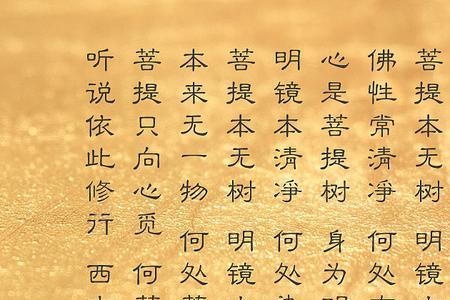 菩提本无树 明镜
佛性常清净 何处
心是菩提树 身为
明镜本清净 何处
菩提本无树 明镜
本来无一物 何处
菩提只向心觅 何
听说依此修行 西